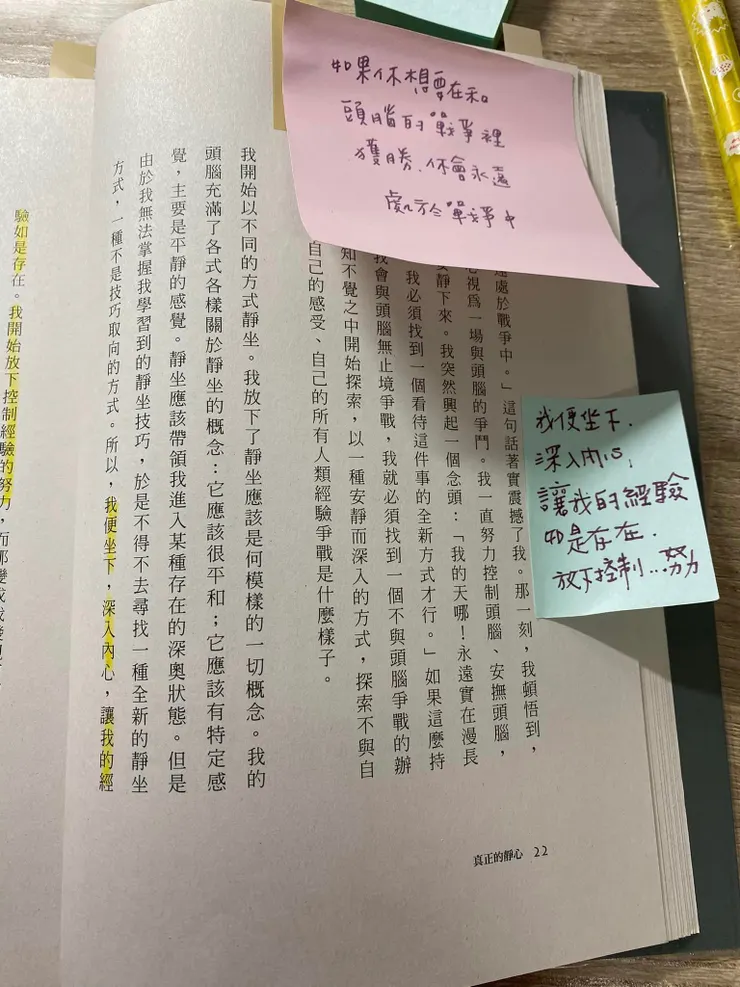 如果你想要在和
頭腦的戰爭裡
獲勝，你會永遠
處於戰爭中
我便坐下，
深入內心，
讓我的經驗
如是存在，
放下控制…努力
遠處於戰爭中。」這句話著實震撼了我。那一刻，我頓悟到，
心視為一場與頭腦的爭鬥。我一直努力控制頭腦、安撫頭腦，
安靜下來。我突然興起一個念頭：「我的天哪！永遠實在漫長
我必須找到一個看待這件事的全新方式才行。」如果這麼持
我會與頭腦無止境爭戰，我就必須找到一個不與頭腦爭戰的辦
知不覺之中開始探索，以一種安靜而深入的方式，探索不與自
自己的感受、自己的所有人類經驗爭戰是什麼樣子。
我開始以不同的方式靜坐。我放下了靜坐應該是何模樣的一切概念。我的
頭腦充滿了各式各樣關於靜坐的概念：它應該很平和；它應該有特定感
覺，主要是平靜的感覺。靜坐應該帶領我進入某種存在的深奧狀態。但是
由於我無法掌握我學習到的靜坐技巧，於是不得不去尋找一種全新的靜坐
方式，一種不是技巧取向的方式。所以，我便坐下，深入內心，讓我的經
真正的靜心 22
驗如是存在。我開始放下控制經驗的努力，而那變成我發現